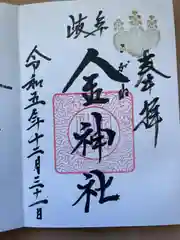 奉拝
岐阜
金神社
令和五年十二月三十一日